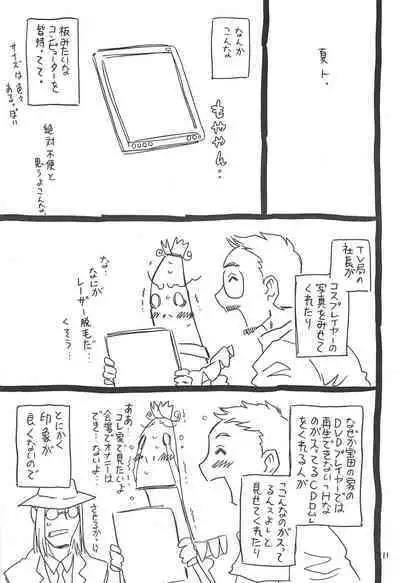 夏ト。
なんか
こんな
もややん。
板みたいな
コンピューターを
皆持ってて。
サイズは色々
あるっぽい
絶対不便と
思うよこんな。
TV局の
社長が
コスプレイヤーの
写真をみせて
くれたり
な…
なにが
レーザー脱毛だ…
くそう…
なぜか宝田の家の
DVDプレイヤーでは
再生できないHな
のがスってるCDROM
をくれる人が
「こんなのがスって
るんスよ」と
見せてくれたり
ああ…
コレ家で見たいよ
会場でオナニーは
でき…ないよ…
とにかく
印象が
良くないので
11